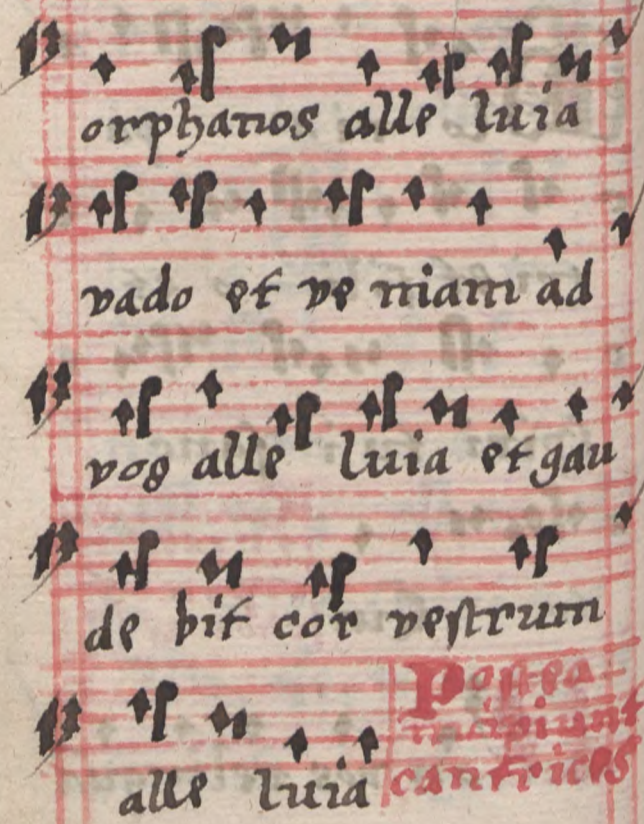 orphanos alle luia
vado et ve niam ad
vos alle luia et gau
de bit cor vestrum
alle luia
Postea
incipiunt
cantrices